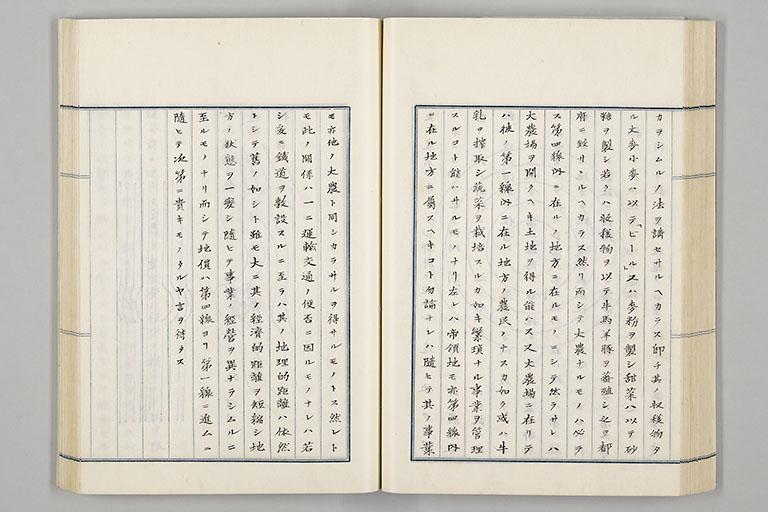 カラシムルノ法ヲ講セサルヘカラス即チ其ノ収穫物タ
ル大麥小麥ハ以テ「ビール」又ハ麥粉ヲ製シ甜菜ハ以テ砂
糖ヲ製シ若クハ収穫物ヲ以テ牛馬羊豚ヲ蕃殖シ之ヲ都
府ニ致サヽルヘカラス然リ而シテ大農ナルモノハ必ラ
ス第四線内ニ在ルノ地方ニ在ルモノニシテ然ラサレハ
大農場ヲ開クヘキ土地ヲ得ル能ハス又大農場ニ在リテ
ハ彼ノ第一線内ニ在ル地方ノ農民ノナスカ如ク或ハ牛
乳ヲ搾取シ蔬菜ヲ栽培スルカ如キ繁瑣ナル事業ヲ管理
スルコト能ハサルモノナリ左レハ帝領地モ亦第四線内
ニ在ル地方ニ屬スヘキコト勿論ナレハ隨ヒテ其ノ事業
モ亦他ノ大農ト同シカラサルヲ得サルモノトス然レト
モ此ノ關係ハ一ニ運輸交通ノ便否ニ因ルモノナレハ若
シ爰ニ鐵道ヲ敷設スルニ至ラハ其ノ地理的距離ハ依然
トシテ舊ノ如シト雖モ大ニ其ノ經濟的距離ヲ短縮シ地
方ノ狀態ヲ一變シ隨ヒテ事業ノ經營ヲ異ナラシムルニ
至ルモノナリ而シテ地價ハ第四線ヨリ第一線ニ進ムニ
隨ヒテ次第ニ貴キモノタルヤ言ヲ待タス